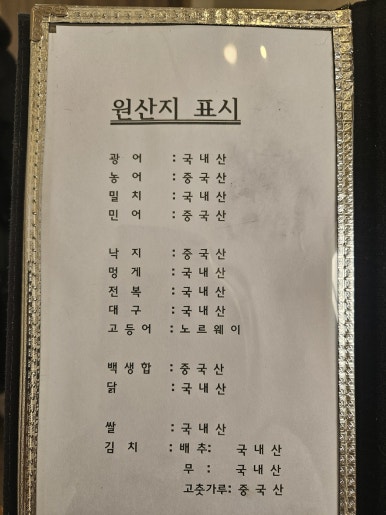 원산지 표시
광 어 : 국 내 산
농 어 : 중 국 산
밀 치 : 국 내 산
민 어 : 중 국 산
낙 지 : 중 국 산
멍 게 : 국 내 산
전 복 : 국 내 산
대 구 : 국 내 산
고 등 어 : 노 르 웨 이
백 생 합 : 중 국 산
닭 : 국 내 산
쌀 : 국 내 산
김 치 : 배 추: 국 내 산
무 : 국 내 산
고춧가루: 중 국 산